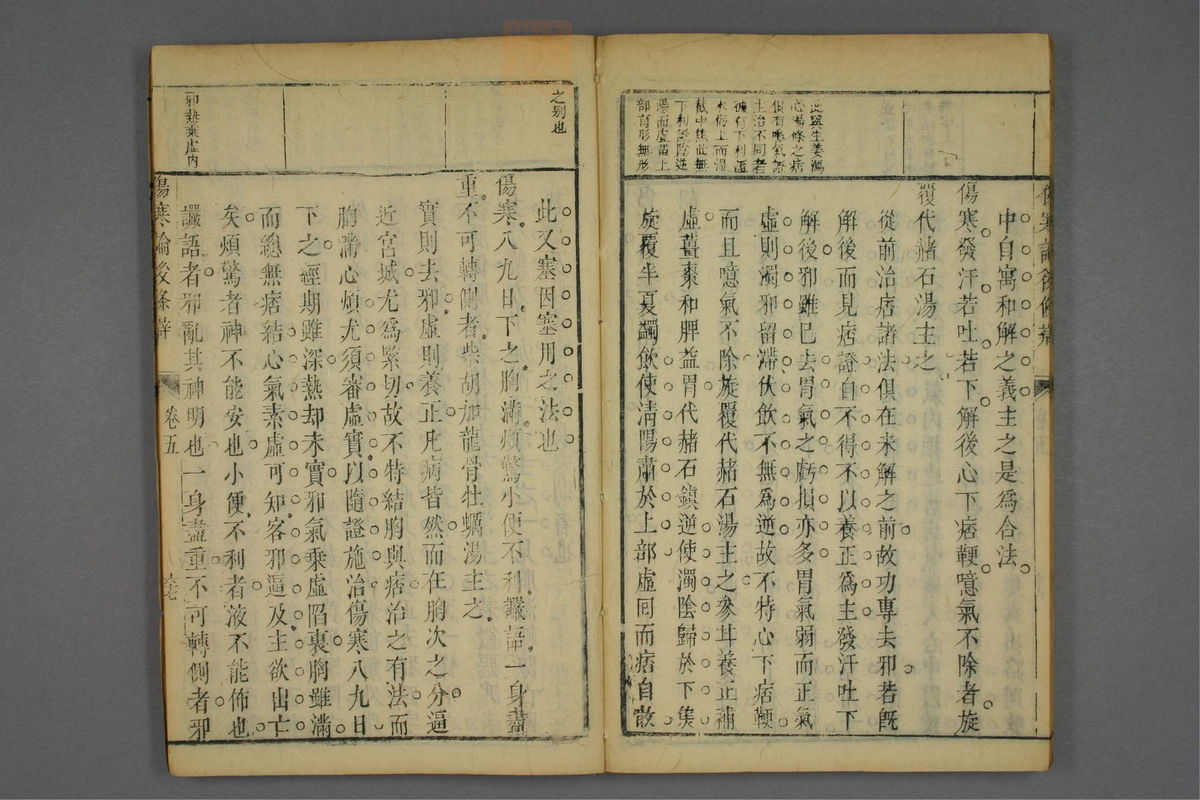 傷寒論後條辨
中自寓和解之義主之是爲合法
傷寒發汗若吐若下解後心下痞鞕噫氣不除者旋
覆代赭石湯主之
從前治痞諸法俱在未解之前故功專去邪若旣
解後而見痞證自不得不以養正爲主發汗吐下
解後邪雖已去胃氣之虧損亦多胃氣弱而正氣
虛則濁邪留滯伏飲不無爲逆故不特心下痞鞕
而且噫氣不除旋覆代赭石湯主之參甘養正補
虛薑棗和脾益胃代赭石鎮逆使濁陰歸於下焦
旋覆半夏蠲飲使淸陽肅於上部虛回而痞自散
此與生姜瀉
心湯條之痞
俱有噫氣證
主治不同者
彼有下利證
水侮上而溼
截中焦此無
下利證陰逆
陽而虛留上
部有形無形
之别也
此又塞因塞用之法也
傷寒八九日下之胸滿煩驚小便不利讝語一身盡
重不可轉側者柴胡加龍骨牡蠣湯主之
實則去邪虛則養正凡病皆然而在胸次之分逼
近宮城尤爲緊切故不特結胸與痞治之有法而
胸滿心煩尤須審虛實以隨證施治傷寒八九日
下之經期雖深熱却未實邪氣乘虛陷裏胸雖滿
而總無痞結心氣素虛可知客邪逼及主欲出亡
矣煩驚者神不能安也小便不利者液不能佈也
讝語者邪亂其神明也一身盡重不可轉側者邪
邪熱乘虛內
傷寒論後條辨
卷五